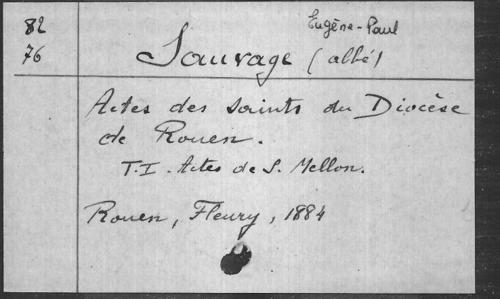 82
76
Eugène-Paul
Sauvage (abbé)
Actes des saints du Diocèse
de Rouen.
T.I. Actes de S. Mellon.
Rouen, Fleury, 1884